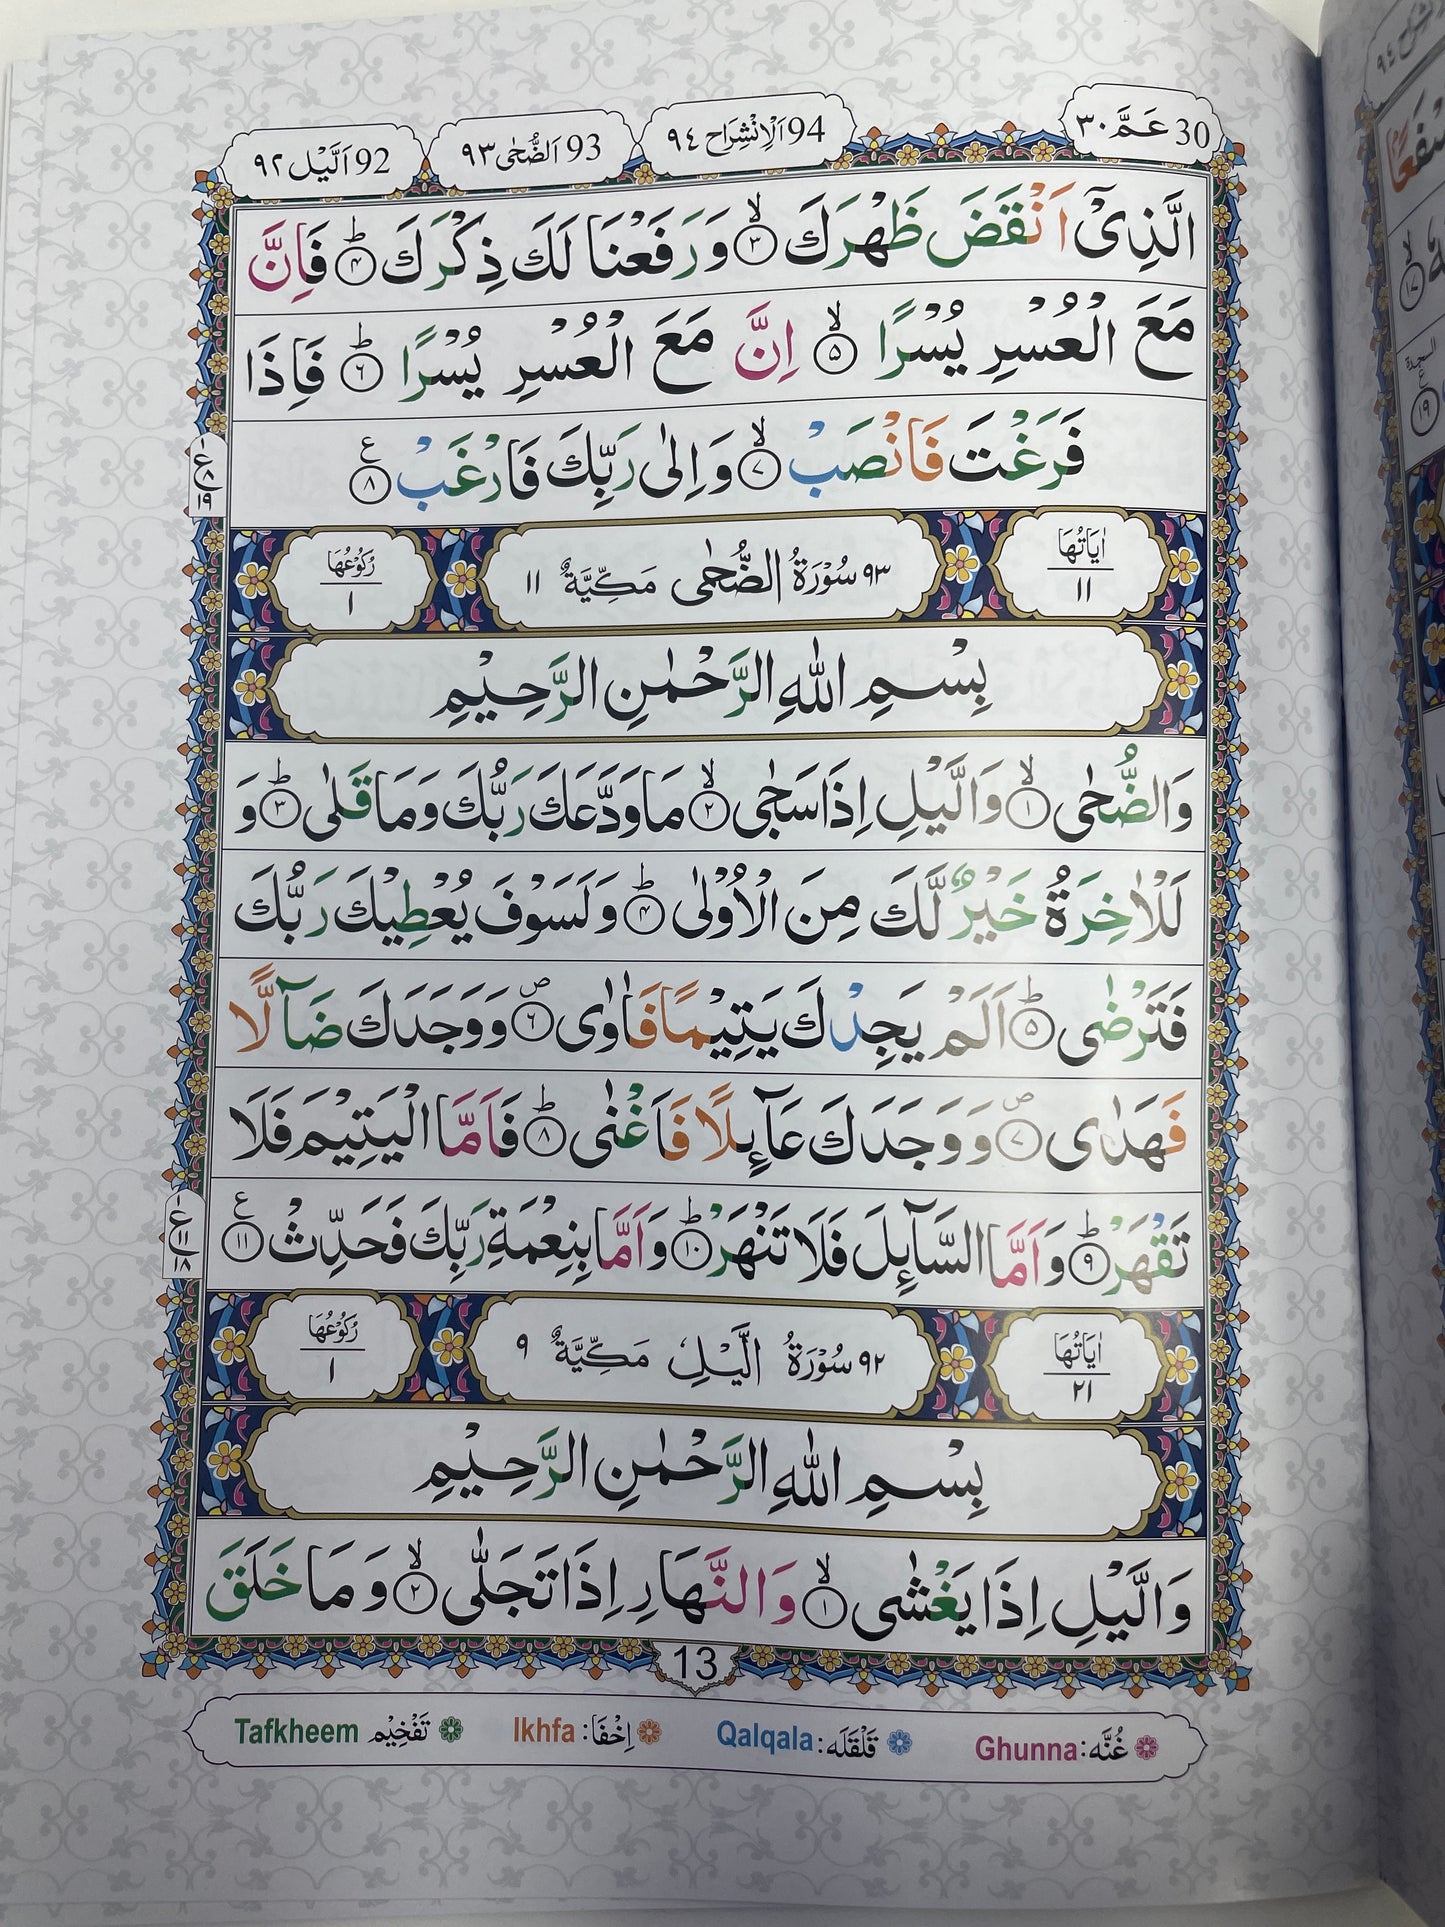 30 عَمَّ ٣٠
94 اَلْاِنْشِرَاح ٩٤
93 اَلضُّحٰى ٩٣
92 اَلَّيْل ٩٢
الَّذِىْۤ اَنْقَضَ ظَهْرَكَ ۙ‏﴿۳﴾ وَ رَفَعْنَا لَكَ ذِكْرَكَ ؕ‏﴿۴﴾ فَاِنَّ
مَعَ الْعُسْرِ يُسْرًا ۙ‏﴿۵﴾ اِنَّ مَعَ الْعُسْرِ يُسْرًا ؕ‏﴿۶﴾ فَاِذَا
فَرَغْتَ فَانْصَبْ ۙ‏﴿۷﴾ وَ اِلٰى رَبِّكَ فَارْغَبْ ﴿۸﴾ ع
ع ٨ ١٩
اٰيَاتُهَا ١١
٩٣ سُوْرَةُ الضُّحٰى مَكِّيَّةٌ ١١
رُكُوْعُهَا ١
بِسْمِ اللّٰهِ الرَّحْمٰنِ الرَّحِيْمِ
وَالضُّحٰى ۙ‏﴿۱﴾ وَالَّيْلِ اِذَا سَجٰى ۙ‏﴿۲﴾ مَا وَدَّعَكَ رَبُّكَ وَمَا قَلٰى ؕ‏﴿۳﴾ وَ
لَلْاٰخِرَةُ خَيْرٌ لَّكَ مِنَ الْاُوْلٰى ؕ‏﴿۴﴾ وَلَسَوْفَ يُعْطِيْكَ رَبُّكَ
فَتَرْضٰى ؕ‏﴿۵﴾ اَلَمْ يَجِدْكَ يَتِيْمًا فَاٰوٰى ۖ‏﴿۶﴾ وَوَجَدَكَ ضَآلًّا
فَهَدٰى ۖ‏﴿۷﴾ وَوَجَدَكَ عَآئِلًا فَاَغْنٰى ؕ‏﴿۸﴾ فَاَمَّا الْيَتِيْمَ فَلَا
تَقْهَرْ ؕ‏﴿۹﴾ وَاَمَّا السَّآئِلَ فَلَا تَنْهَرْ ؕ‏﴿۱۰﴾ وَاَمَّا بِنِعْمَةِ رَبِّكَ فَحَدِّثْ ﴿۱۱﴾ ع
ع ١١ ١٨
اٰيَاتُهَا ٢١
٩٢ سُوْرَةُ الَّيْلِ مَكِّيَّةٌ ٩
رُكُوْعُهَا ١
بِسْمِ اللّٰهِ الرَّحْمٰنِ الرَّحِيْمِ
وَالَّيْلِ اِذَا يَغْشٰى ۙ‏﴿۱﴾ وَالنَّهَارِ اِذَا تَجَلّٰى ۙ‏﴿۲﴾ وَمَا خَلَقَ
13
غُنَّه: Ghunna
قَلْقَلَه: Qalqala
اِخْفَا: Ikhfa
تَفْخِيْم Tafkheem